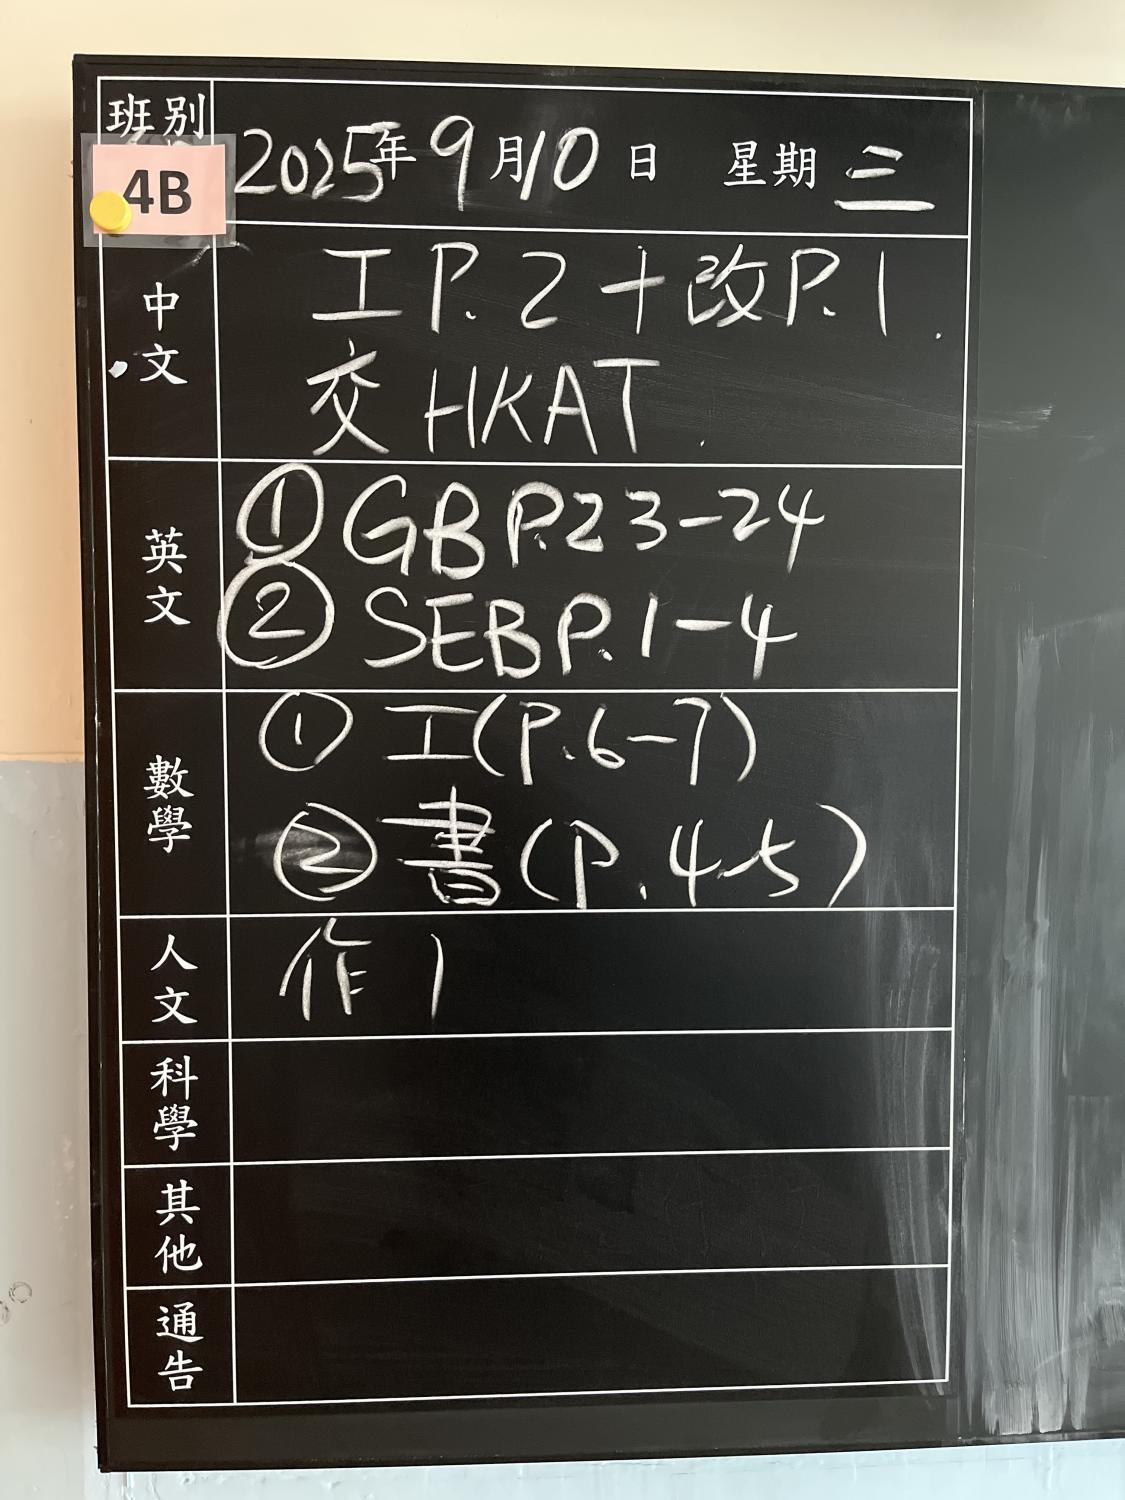 班別 4B 2025年9月10日 星期三
中文 工 P. 2 + 改 P. 1.
交 HKAT.
英文 ① GB P.23-24
② SEB P.1-4
數學 ① 工(P.6-7)
② 書(P.4-5)
人文 作1
科學
其他
通告